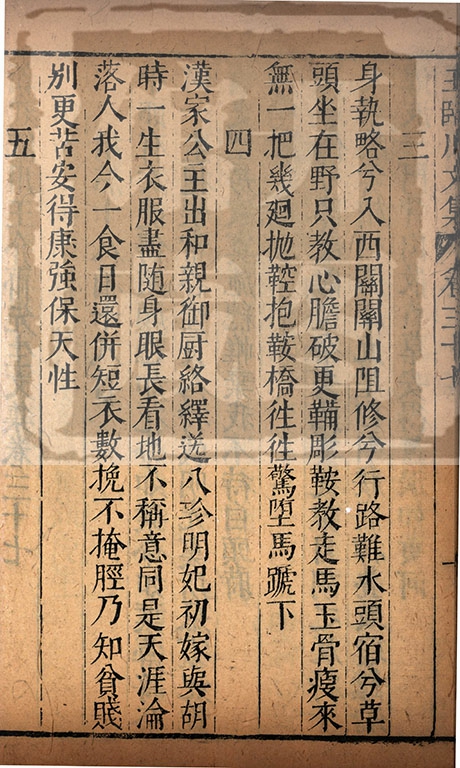 王臨川文集 卷三十七
三
身執略兮入西關關山阻修兮行路難水頭宿兮草
頭坐在野只教心膽破更鞴彫鞍教走馬玉骨瘦來
無一把幾廻拋鞚抱鞍橋往往驚墮馬蹏下
四
漢家公王出和親御厨絡繹送八珍明妃初嫁與胡
時一生衣服盡随身眼長看地不稱意同是天涯淪
落人我今一食日還併短衣數挽不掩脛乃知貧賤
别更苦安得康強保天性
五